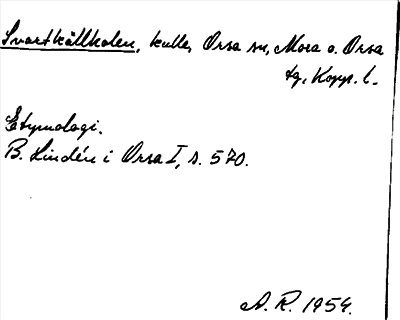 Svartkällkolen, kulle, Orsa sn, Mora o. Orsa
tg, Kopp. l.
Etymologi.
B. Lindén i Orsa I, s. 570.
A. R. 1954.